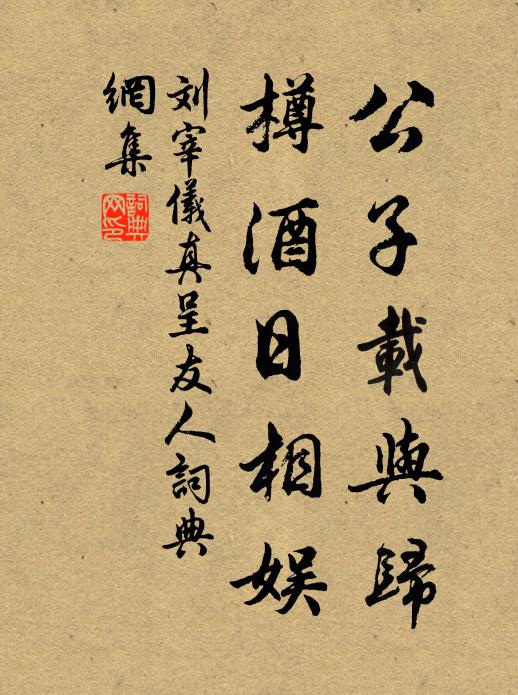 公子載與歸
樽酒日相娱
刘宰儀真呈友人詞典
網集
詞典
网印